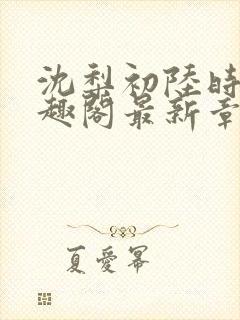 沈梨初陸時
趣閣最新章
夏愛冪